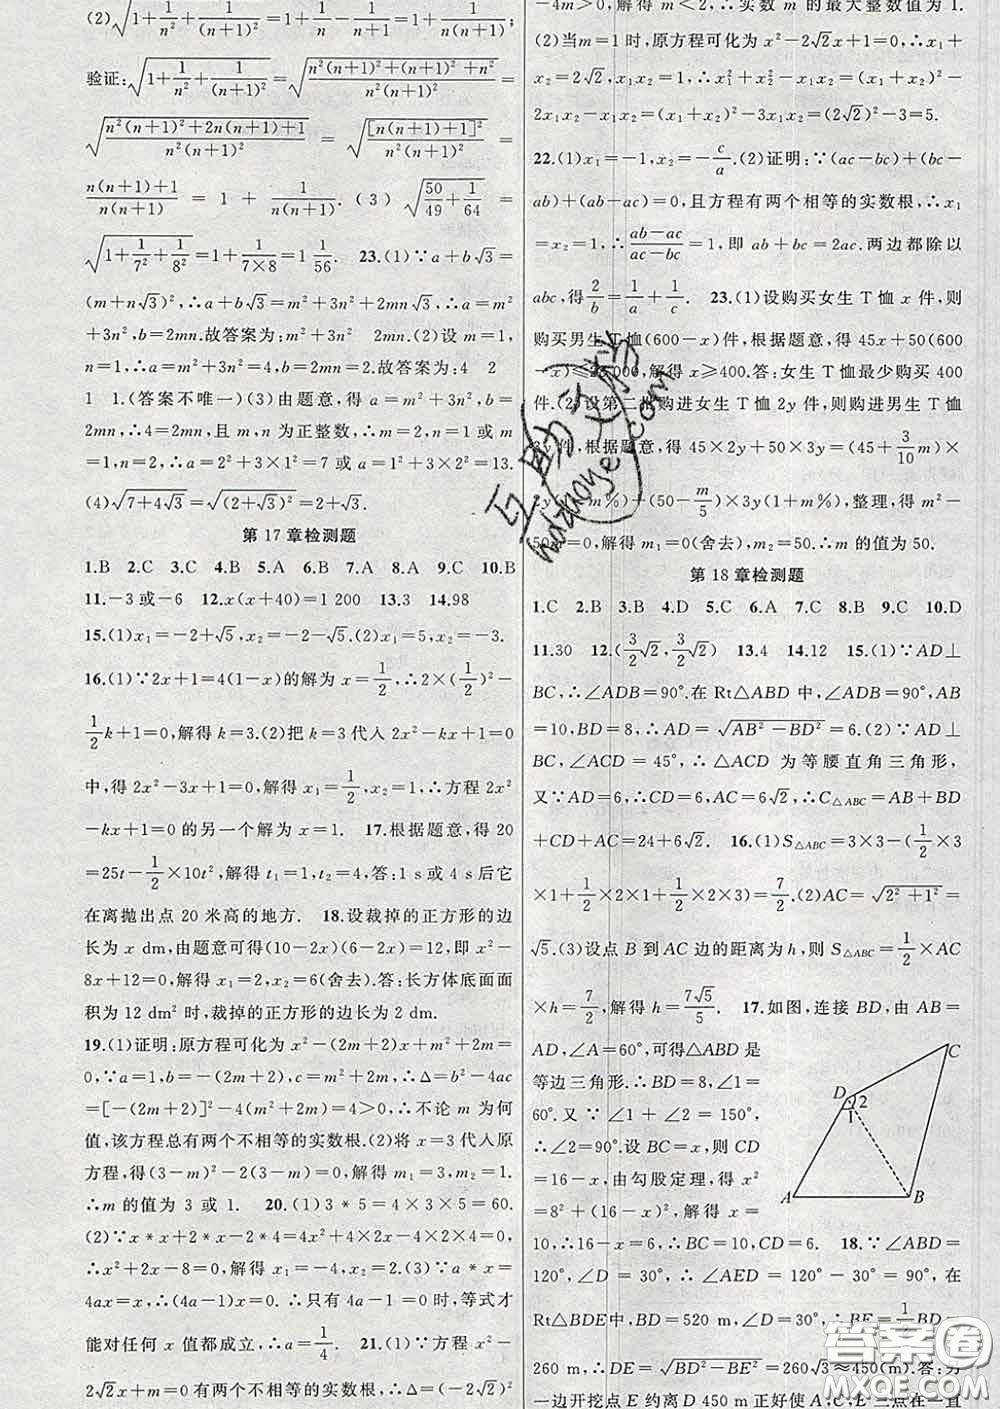 (2)√(1+1/n²+1/(n+1)²)=1+1/n-1/(n+1)=1+1/(n(n+1));
验证:√(1+1/n²+1/(n+1)²)=√((n²(n+1)²+(n+1)²+n²)/(n²(n+1)²))=
√((n²(n+1)²+2n(n+1)+1)/(n²(n+1)²)) = √([n(n+1)+1]²/(n²(n+1)²)) =
(n(n+1)+1)/(n(n+1)) = 1 + 1/(n(n+1)). (3) √(50/49+1/64) =
√(1+1/7²+1/8²)=1+1/(7×8)=1 1/56. 23.(1)∵a+b√3=
(m+n√3)²,∴a+b√3=m²+3n²+2mn√3,∴a=m²
+3n²,b=2mn.故答案为:m²+3n² 2mn.(2)设 m=1,
n=1,∴a=m²+3n²=4,b=2mn=2.故答案为:4 2
1 1.(答案不唯一)(3)由题意,得 a=m²+3n²,b=
2mn,∴4=2mn,且 m,n 为正整数,∴m=2,n=1 或 m
=1,n=2,∴a=2²+3×1²=7 或 a=1²+3×2²=13.
(4)√(7+4√3)=√((2+√3)²)=2+√3.
第 17 章检测题
1.B 2.C 3.C 4.B 5.A 6.B 7.A 8.A 9.C 10.B
11.-3 或-6 12.x(x+40)=1 200 13.3 14.98
15.(1)x₁=-2+√5,x₂=-2-√5.(2)x₁=5,x₂=-3.
16.(1)∵2x+1=4(1-x)的解为 x=1/2,∴2×(1/2)²-
1/2k+1=0,解得 k=3.(2)把 k=3 代入 2x²-kx+1=0
中,得 2x²-3x+1=0,解得 x₁=1/2,x₂=1,∴方程 2x²
-kx+1=0 的另一个解为 x=1. 17.根据题意,得 20
=25t-1/2×10t²,解得 t₁=1,t₂=4,答:1 s 或 4 s 后它
在离抛出点 20 米高的地方. 18.设裁掉的正方形的边
长为 x dm,由题意可得(10-2x)(6-2x)=12,即 x²-
8x+12=0,解得 x₁=2,x₂=6(舍去).答:长方体底面面
积为 12 dm² 时,裁掉的正方形的边长为 2 dm.
19.(1)证明:原方程可化为 x²-(2m+2)x+m²+2m=
0,∵a=1,b=-(2m+2),c=m²+2m,∴Δ=b²-4ac
=[-(2m+2)]²-4(m²+2m)=4>0,∴不论 m 为何
值,该方程总有两个不相等的实数根.(2)将 x=3 代入原
方程,得(3-m)²-2(3-m)=0,解得 m₁=3,m₂=1.
∴m 的值为 3 或 1. 20.(1)3*5=4×3×5=60.
(2)∵x*x+2*x-2*4=0,∴4x²+8x-4×2×4=
0,∴x²+2x-8=0.解得 x₁=-4,x₂=2.(3)∵a*x=
4ax=x,∴(4a-1)x=0.∴只有 4a-1=0 时,等式才
能对任何 x 值都成立,∴a=1/4. 21.(1)∵方程 x²-
2√2x+m=0 有两个不相等的实数根,∴Δ=(-2√2)²
-4m>0,解得 m<2,∴实数 m 的最大整数值为 1.
(2)当m=1时,原方程可化为x²-2√2x+1=0,∴x₁+
x₂=2√2,x₁x₂=1,∴x₁²+x₂²-x₁x₂=(x₁+x₂)²-
2x₁x₂-x₁x₂=(x₁+x₂)²-3x₁x₂=(2√2)²-3=5.
22.(1)x₁=-1,x₂=-c/a.(2)证明:∵(ac-bc)+(bc-
ab)+(ab-ac)=0,且方程有两个相等的实数根,∴x₁
=x₂=1,∴(ab-ac)/(ac-bc)=1,即 ab+bc=2ac.两边都除以
abc,得2/b=1/a+1/c. 23.(1)设购买女生 T 恤 x 件,则
购买男生T恤(600-x)件,根据题意,得 45x+50(600
-x)≤28 000,解得 x≥400.答:女生 T 恤最少购买 400
件.(2)设第二批购进女生 T 恤 2y 件,则购进男生 T 恤
3y 件,根据题意,得 45×2y+50×3y=(45+3/10m)×
2y(1-m%)+(50-m/5)×3y(1+m%),整理,得 m²-
50m=0,解得 m₁=0(舍去),m₂=50.∴m 的值为 50.
第 18 章检测题
1.C 2.B 3.B 4.D 5.C 6.A 7.C 8.B 9.C 10.D
11.30 12.(3/2√2,3/2√2) 13.4 14.12 15.(1)∵AD⊥
BC,∴∠ADB=90°.在 Rt△ABD 中,∠ADB=90°,AB
=10,BD=8,∴AD=√(AB²-BD²)=6.(2)∵AD⊥
BC,∠ACD=45°,∴△ACD 为等腰直角三角形,
又∵AD=6,∴CD=6,AC=6√2,∴C△ABC=AB+BD
+CD+AC=24+6√2. 16.(1)S△ABC=3×3-(1/2×3
×1+1/2×2×1+1/2×2×3)=7/2.(2)AC=√(2²+1²)=
√5.(3)设点 B 到 AC 边的距离为 h,则 S△ABC=1/2×AC
×h=7/2,解得 h=7√5/5. 17.如图,连接 BD,由 AB=
AD,∠A=60°,可得△ABD 是
等边三角形.∴BD=8,∠1=
60°.又∵∠1+∠2=150°,
∴∠2=90°.设 BC=x,则 CD
=16-x,由勾股定理,得 x²
=8²+(16-x)²,解得 x=
10,∴16-x=6,∴BC=10,CD=6. 18.∵∠ABD=
120°,∠D=30°,∴∠AED=120°-30°=90°,在
Rt△BDE中,BD=520 m,∠D=30°,∴BE=1/2BD=
260 m,∴DE=√(BD²-BE²)=260√3≈450(m).答:另
一边开挖点 E 约离 D 450 m 正好使 A,C,E 三点在一直
A
B
C
D
1
2
互助文档
hdzuoye.com
答案圈
MXQE.COM